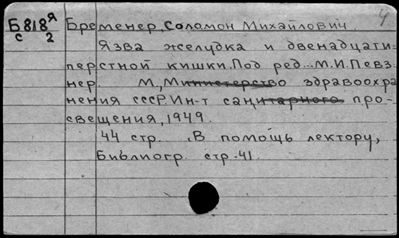 Б818я Бременер, Соломон Михайлович. 4
с 2
Язва желудка и двенадцати-
перстной кишки. Под ред. М.И. Певз-
нер. М., Министерство здравоохра
нения СССР. Ин-т санитарного про-
свещения, 1949.
44 стр. В помощь лектору,
Библиогр. стр. 41.